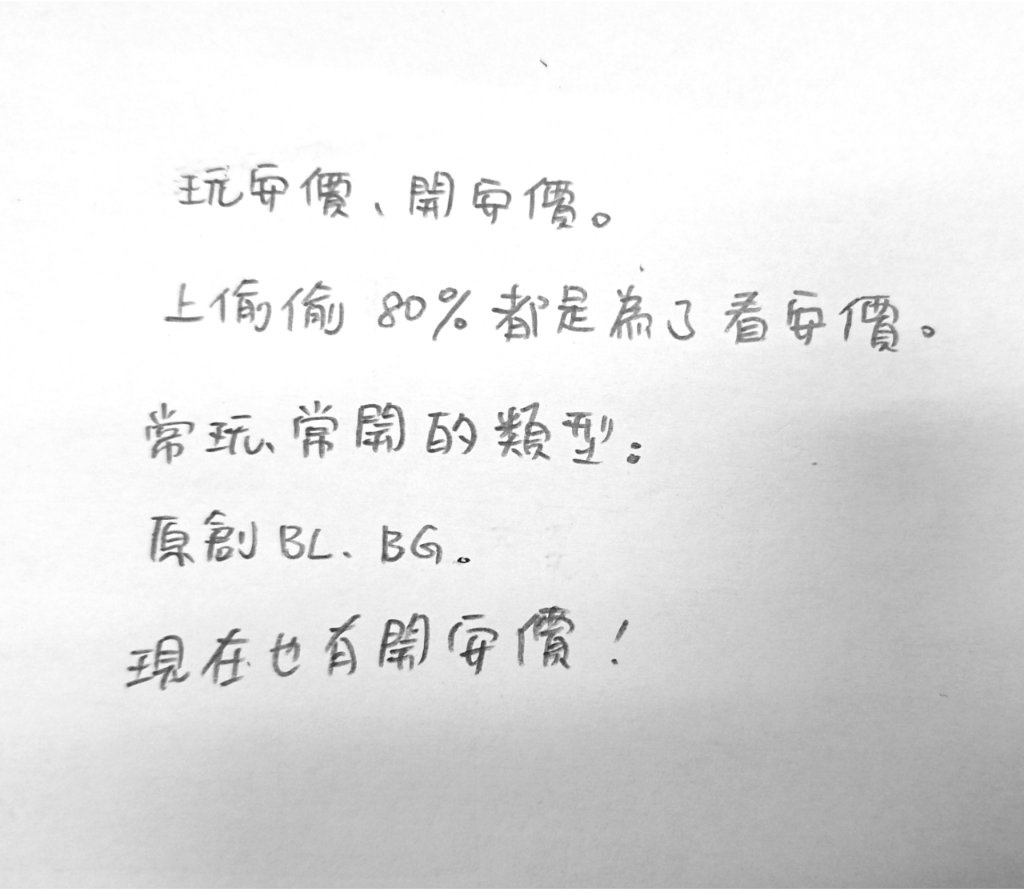 玩安價、開安價。
上偷偷 80% 都是為了看安價。
常玩、常開的類型：
原創 BL、BG。
現在也有開安價！